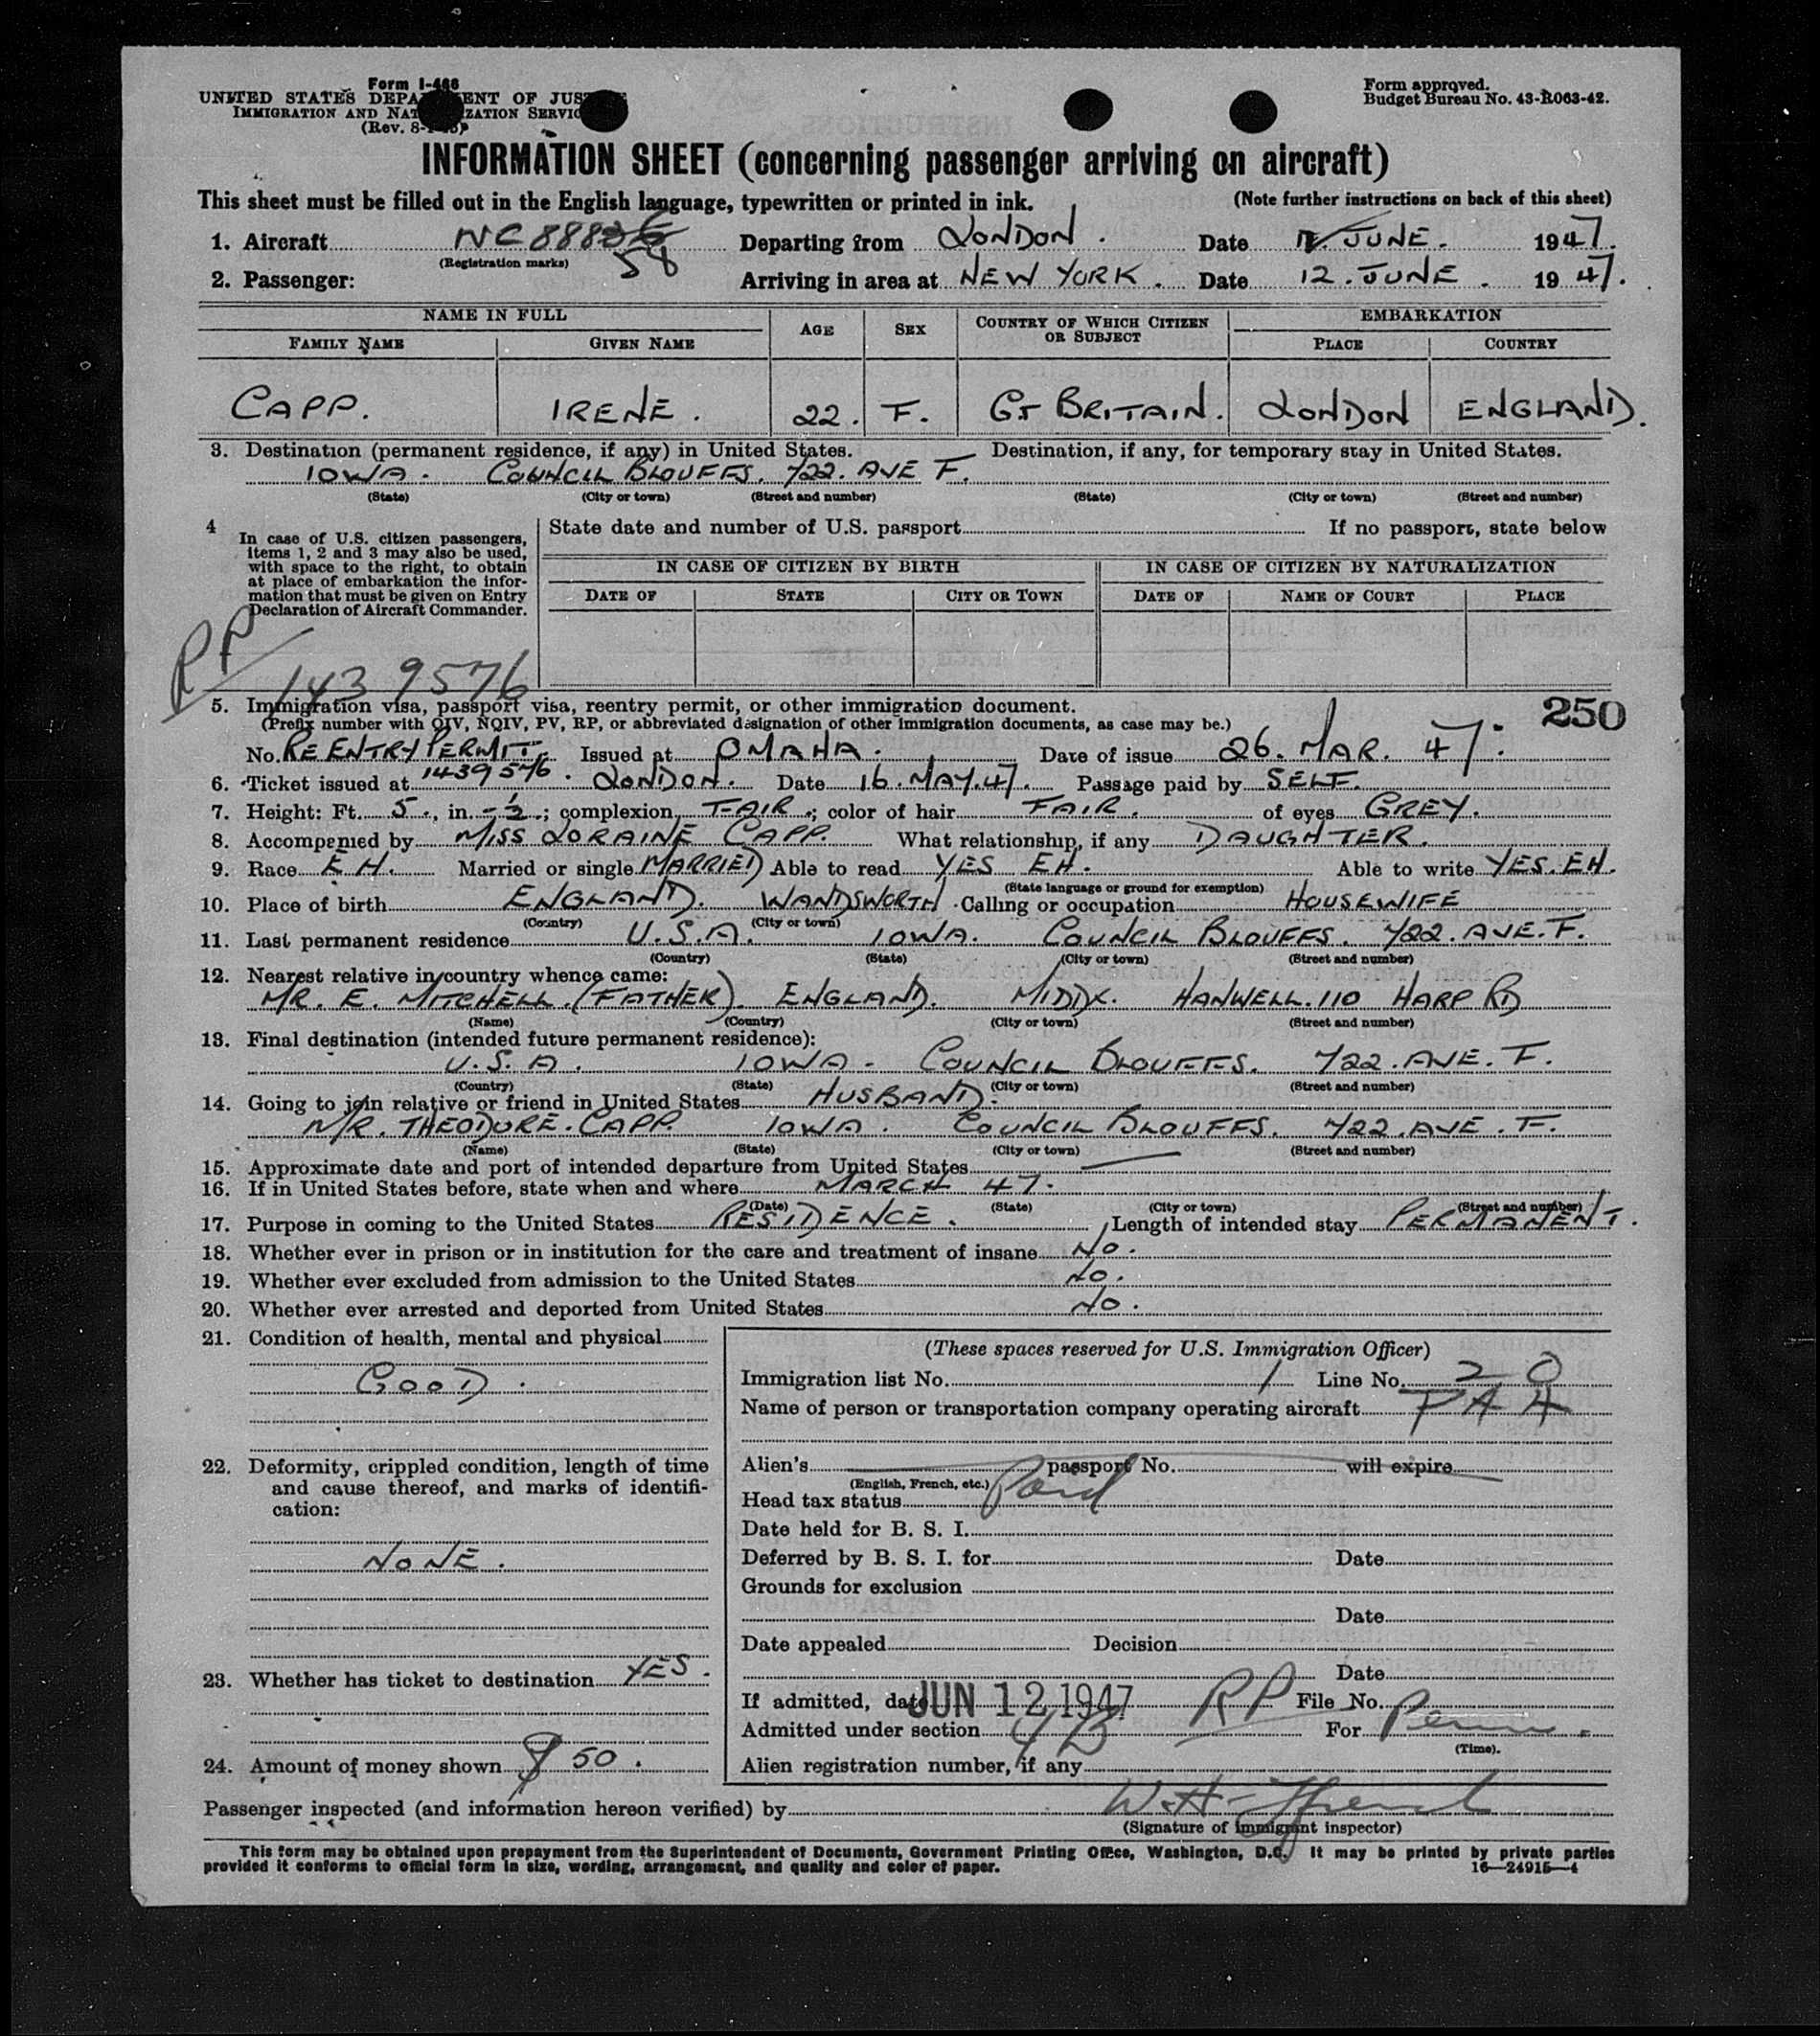 Form I-466
UNITED STATES DEPARTMENT OF JUSTICE
IMMIGRATION AND NATURALIZATION SERVICE
(Rev. 8-
Form approved.
Budget Bureau No. 43-R063-42.
INFORMATION SHEET (concerning passenger arriving on aircraft)
This sheet must be filled out in the English language, typewritten or printed in ink. (Note further instructions on back of this sheet)
1. Aircraft NC 888 58 Departing from LONDON. Date JUNE. 1947.
(Registration marks)
2. Passenger: Arriving in area at NEW YORK. Date 12. JUNE. 1947.
NAME IN FULL AGE SEX COUNTRY OF WHICH CITIZEN OR SUBJECT EMBARKATION
FAMILY NAME GIVEN NAME PLACE COUNTRY
CAPP. IRENE. 22. F. GT BRITAIN. LONDON ENGLAND.
3. Destination (permanent residence, if any) in United States. Destination, if any, for temporary stay in United States.
IOWA. COUNCIL BLOUFFS. 722. AVE F.
(State) (City or town) (Street and number) (State) (City or town) (Street and number)
4 In case of U.S. citizen passengers,
items 1, 2 and 3 may also be used,
with space to the right, to obtain
at place of embarkation the infor-
mation that must be given on Entry
Declaration of Aircraft Commander.
State date and number of U.S. passport If no passport, state below
IN CASE OF CITIZEN BY BIRTH IN CASE OF CITIZEN BY NATURALIZATION
DATE OF STATE CITY OR TOWN DATE OF NAME OF COURT PLACE
RP 1439576
5. Immigration visa, passport visa, reentry permit, or other immigration document. 250
(Prefix number with QIV, NQIV, PV, RP, or abbreviated designation of other immigration documents, as case may be.)
No. RE ENTRY PERMIT. Issued at OMAHA. Date of issue 26. MAR. 47.
1439576.
6. Ticket issued at LONDON. Date 16. MAY. 47. Passage paid by SELF.
7. Height: Ft. 5., in. - ½.; complexion FAIR.; color of hair FAIR. of eyes GREY.
8. Accompenied by MISS LORAINE CAPP. What relationship, if any DAUGHTER.
9. Race EH. Married or single MARRIED Able to read YES EH. Able to write YES. EH.
(State language or ground for exemption)
10. Place of birth ENGLAND. WANDSWORTH. Calling or occupation HOUSEWIFE
(Country) (City or town)
11. Last permanent residence U.S.A. IOWA. COUNCIL BLOUFFS. 722. AVE. F.
(Country) (State) (City or town) (Street and number)
12. Nearest relative in country whence came:
MR. E. MITCHELL. (FATHER). ENGLAND. MIDDX. HANWELL. 110 HARP RD
(Name) (Country) (City or town) (Street and number)
13. Final destination (intended future permanent residence):
U.S.A. IOWA. COUNCIL BLOUFFS. 722. AVE. F.
(Country) (State) (City or town) (Street and number)
14. Going to join relative or friend in United States HUSBAND.
MR. THEODORE. CAPP IOWA. COUNCIL BLOUFFS. 722. AVE. F.
(Name) (State) (City or town) (Street and number)
15. Approximate date and port of intended departure from United States —
16. If in United States before, state when and where MARCH 47.
(Date) (State) (City or town) (Street and number)
17. Purpose in coming to the United States RESIDENCE. Length of intended stay PERMANENT.
18. Whether ever in prison or in institution for the care and treatment of insane NO.
19. Whether ever excluded from admission to the United States NO.
20. Whether ever arrested and deported from United States NO.
21. Condition of health, mental and physical
GOOD.
22. Deformity, crippled condition, length of time
and cause thereof, and marks of identifi-
cation:
NONE.
23. Whether has ticket to destination YES.
24. Amount of money shown $ 50.
(These spaces reserved for U.S. Immigration Officer)
Immigration list No. 1 Line No. 20
Name of person or transportation company operating aircraft PAA
Alien's passport No. will expire
(English, French, etc.)
Head tax status Paid
Date held for B. S. I.
Deferred by B. S. I. for Date
Grounds for exclusion
Date
Date appealed Decision
Date
If admitted, date JUN 12 1947 RP File No.
Admitted under section 4B For Perm.
(Time).
Alien registration number, if any
Passenger inspected (and information hereon verified) by W. H.
(Signature of immigrant inspector)
This form may be obtained upon prepayment from the Superintendent of Documents, Government Printing Office, Washington, D.C. It may be printed by private parties
provided it conforms to official form in size, wording, arrangement, and quality and color of paper. 16—24915—4